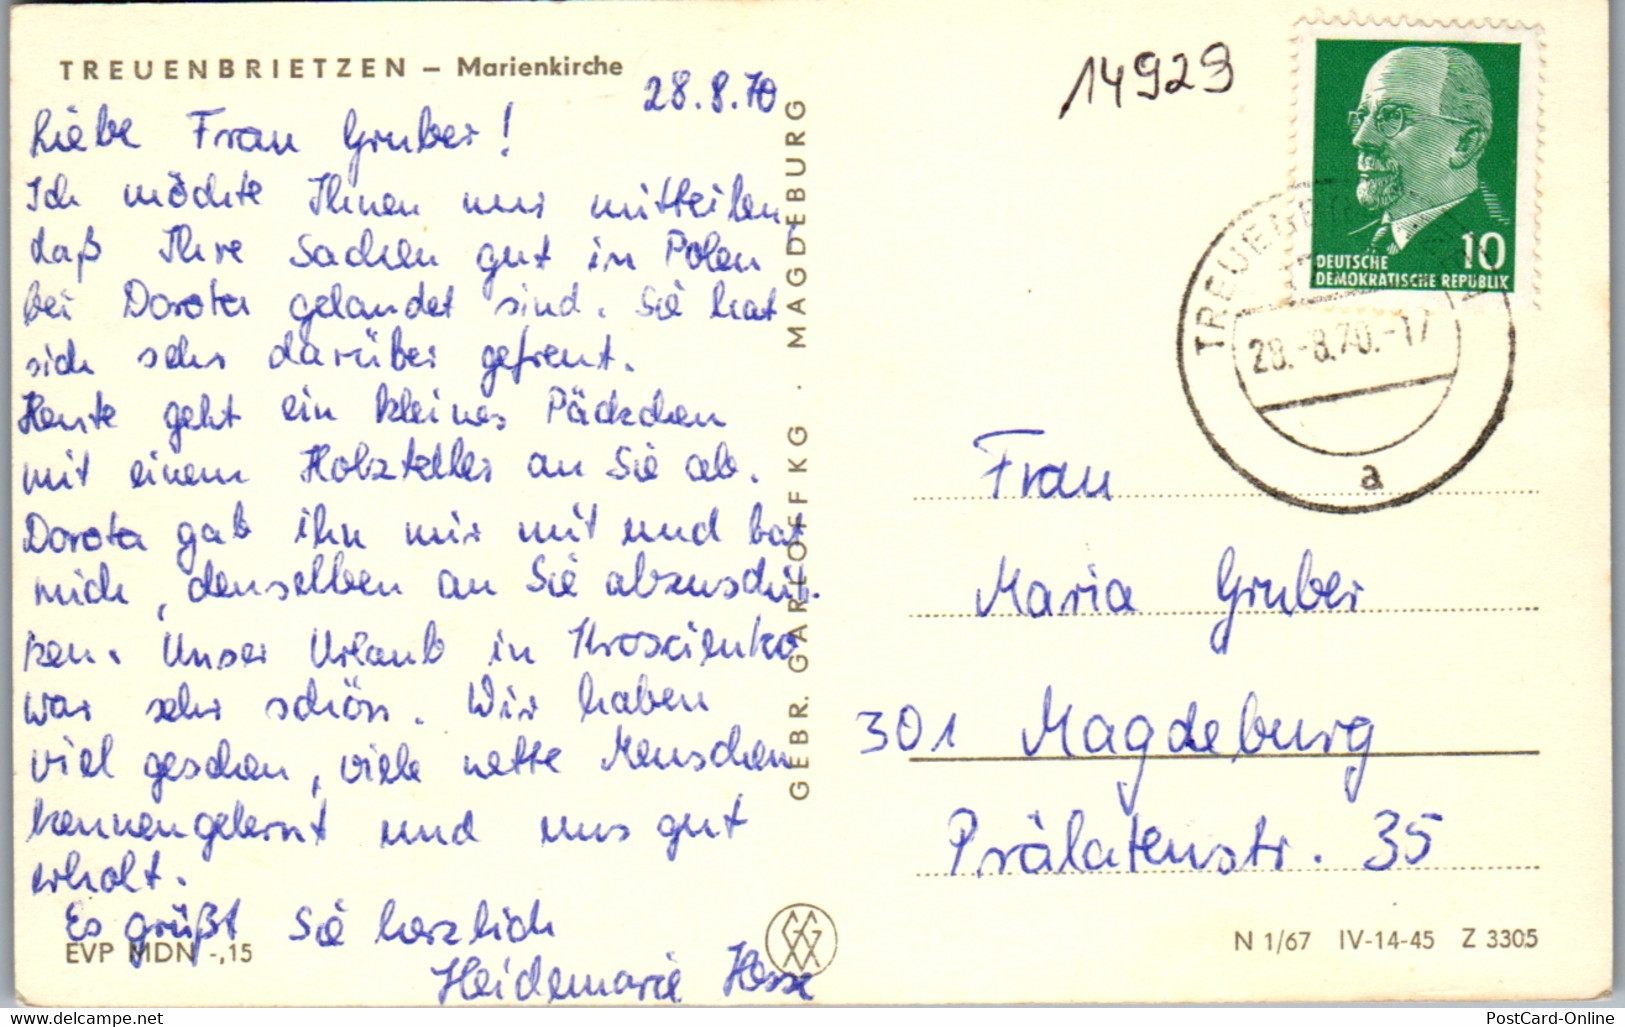 TREUENBRIETZEN – Marienkirche
28.8.70
Liebe Frau Gruber!
Ich möchte Ihnen nur mitteilen,
daß Ihre Sachen gut in Polen
bei Dorota gelandet sind. Sie hat
sich sehr darüber gefreut.
Heute geht ein kleines Päckchen
mit einem Holzteller an Sie ab.
Dorota gab ihn mir mit und bat
mich, denselben an Sie abzuschik-
ken. Unser Urlaub in Kroscienko
war sehr schön. Wir haben
viel gesehen, viele nette Menschen
kennengelernt und uns gut
erholt.
Es grüßt Sie herzlich
Heidemarie Hesse
EVP MDN -,15
GEBR. GARLOFF KG · MAGDEBURG
14929
10
DEUTSCHE
DEMOKRATISCHE REPUBLIK
28.-8.70.-17
a
Frau
Maria Gruber
301 Magdeburg
Prälatenstr. 35
N 1/67 IV-14-45 Z 3305
www.delcampe.net
PostCard-Online